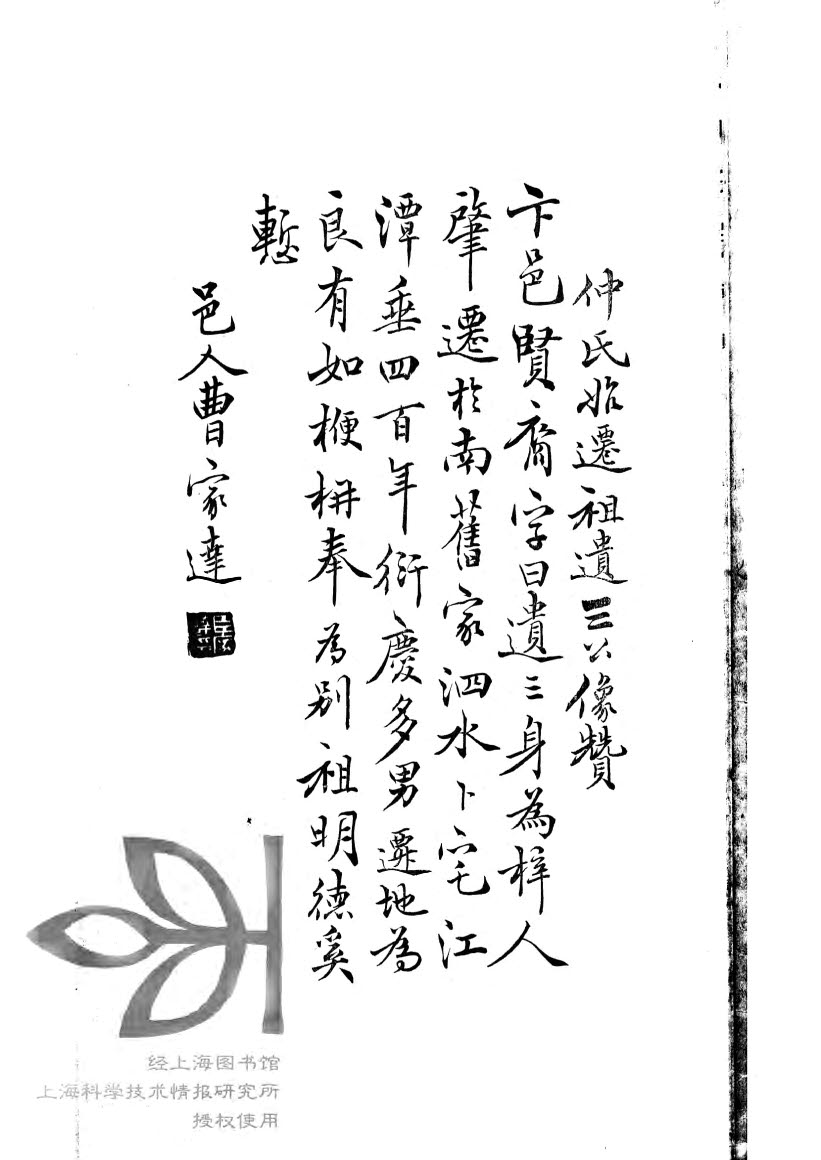 仲氏始遷祖遺三公像贊
卞邑賢裔字曰遺三身為梓人
肇遷於南舊家泗水卜宅江
潭垂四百年衍慶多男遷地為
良有如梗枏奉為別祖明德奚
慙
邑人曹家達
经上海图书馆
上海科学技术情报研究所
授权使用